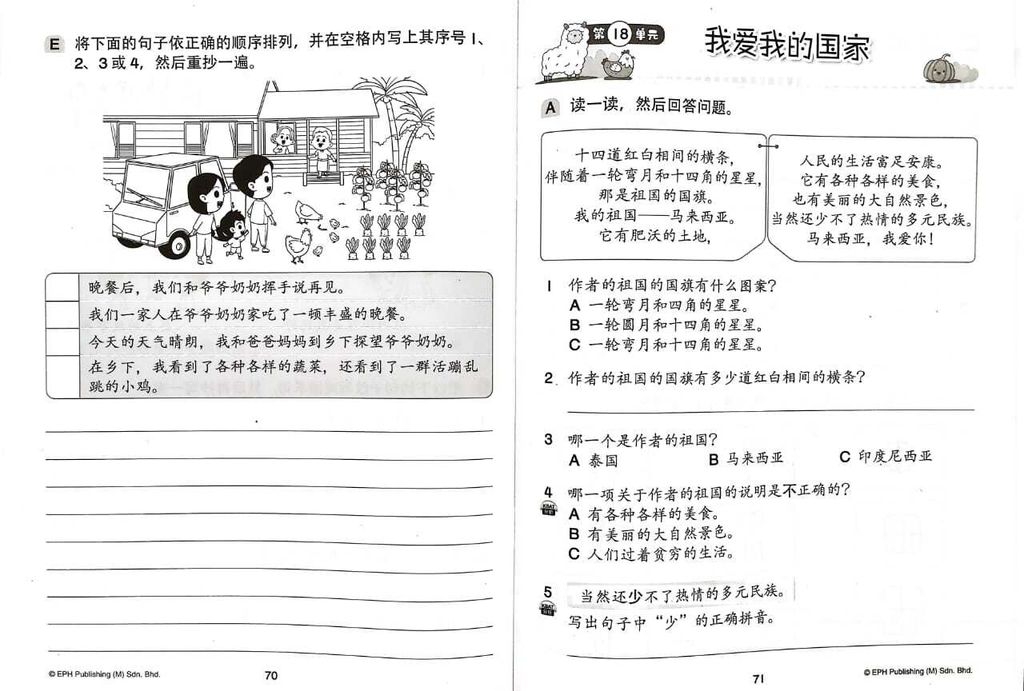 E 将下面的句子依正确的顺序排列，并在空格内写上其序号1、
2、3或4，然后重抄一遍。
晚餐后，我们和爷爷奶奶挥手说再见。
我们一家人在爷爷奶奶家吃了一顿丰盛的晚餐。
今天的天气晴朗，我和爸爸妈妈到乡下探望爷爷奶奶。
在乡下，我看到了各种各样的蔬菜，还看到了一群活蹦乱
跳的小鸡。
© EPH Publishing (M) Sdn. Bhd.
70
第18单元
我爱我的国家
A 读一读，然后回答问题。
十四道红白相间的横条，
伴随着一轮弯月和十四角的星星，
那是祖国的国旗。
我的祖国——马来西亚。
它有肥沃的土地，
人民的生活富足安康。
它有各种各样的美食，
也有美丽的大自然景色，
当然还少不了热情的多元民族。
马来西亚，我爱你！
1 作者的祖国的国旗有什么图案？
A 一轮弯月和四角的星星。
B 一轮圆月和十四角的星星。
C 一轮弯月和十四角的星星。
2. 作者的祖国的国旗有多少道红白相间的横条？
3 哪一个是作者的祖国？
A 泰国 B 马来西亚 C 印度尼西亚
4 哪一项关于作者的祖国的说明是不正确的？
A 有各种各样的美食。
B 有美丽的大自然景色。
C 人们过着贫穷的生活。
5 当然还少不了热情的多元民族。
写出句子中“少”的正确拼音。
71
© EPH Publishing (M) Sdn. Bhd.